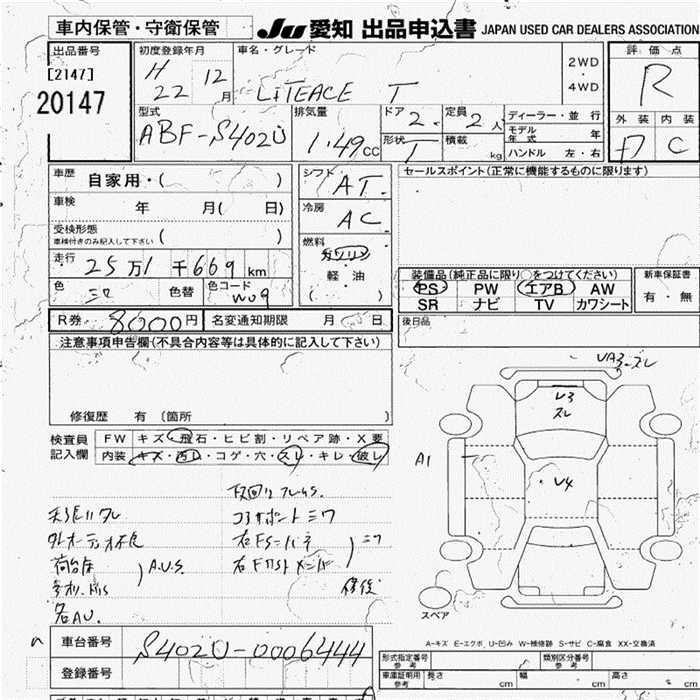 車内保管・守衛保管
JU 愛知 出品申込書 JAPAN USED CAR DEALERS ASSOCIATION
出品番号
[2147]
20147
初度登録年月
H 22 12月
車名・グレード
LiTEACE T
2WD
・
4WD
評価点
R
外装 内装
C
型式
ABF-S402U
排気量
1.49 CC
ドア 2
形状 T
定員 2人
積載 kg
ディーラー・並行
モデル年式 年
ハンドル 左・右
車歴 自家用・( )
車検 年 月( 日)
受検形態
車検付きのみ記入して下さい ( )
走行 25万1千669km
色 色替 色コード W09
シフト AT
冷房 AC
燃料 ガソリン
軽・油
( )
セールスポイント(正常に機能するものに限ります)
装備品(純正品に限り○をつけてください)
PS PW エアB AW
SR ナビ TV カワシート
新車保証書
有・無
後日品
R券 8000円 名変通知期限 月 日
注意事項申告欄(不具合内容等は具体的に記入して下さい)
修復歴 有 〔箇所 〕
検査員記入欄
FW キズ・飛石・ヒビ割・リペア跡・X要
内装 キズ・汚レ・コゲ・穴・スレ・キレ・破レ
天張リタレ
コアサポートミワ
A.U.S.
UA3
スレ
U3
スレ
A1
U4
スペア
A-キズ E-エクボ U-凹み W-補修跡 S-サビ C-腐食 XX-交換済
車台番号 S402U-0006444
登録番号
形式指定番号 参考
類別区分番号
車庫証明用 参考 長さ cm 幅 cm 高さ cm